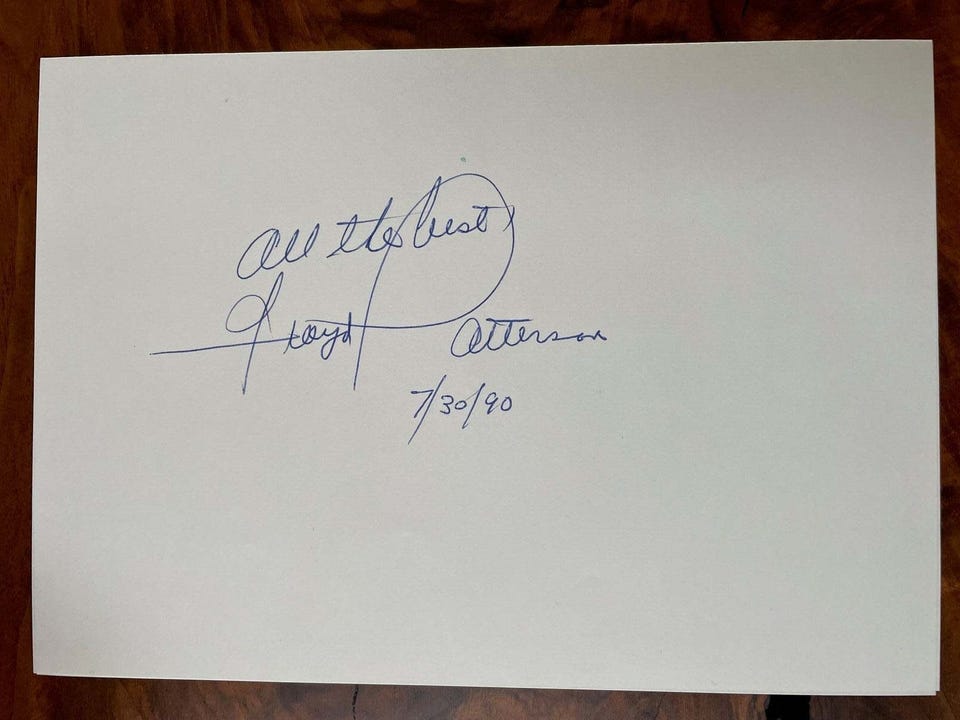 All the best
Floyd Patterson
7/30/90